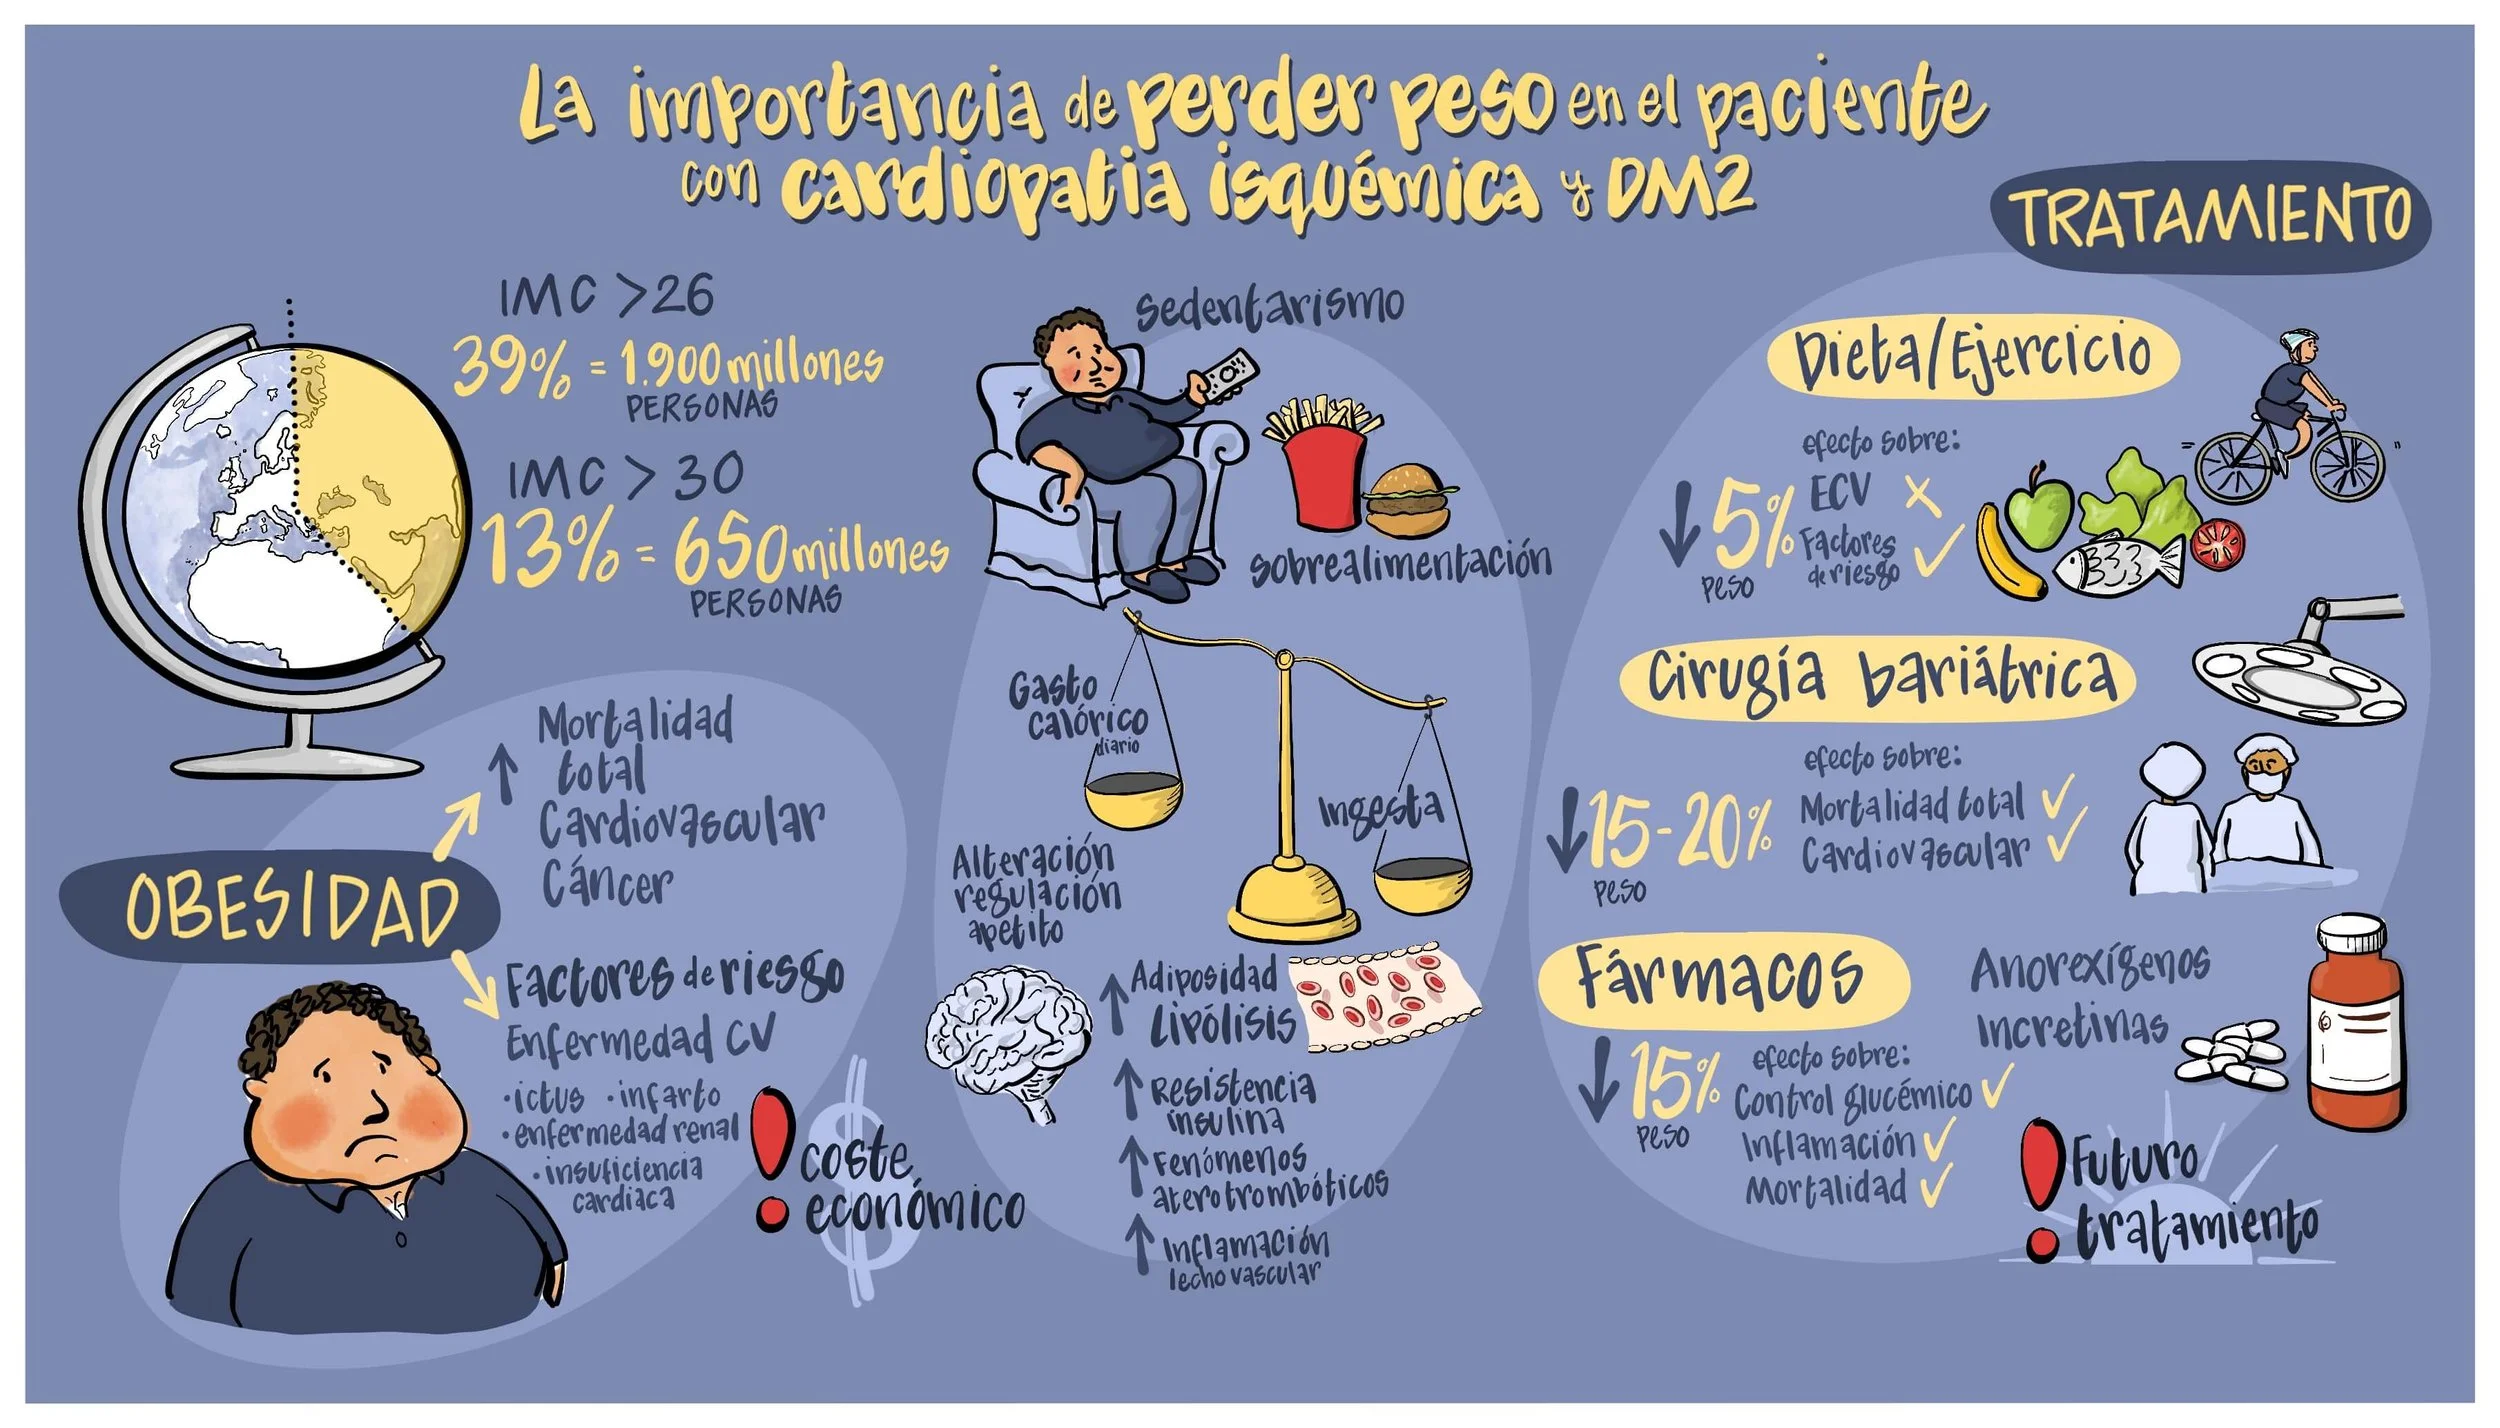 La importancia de perder peso en el paciente
con cardiopatia isquémica y DM2
IMC >26
39% = 1.900 millones
PERSONAS
IMC > 30
13% = 650 millones
PERSONAS
OBESIDAD
↑ Mortalidad
total
Cardiovascular
Cáncer
Factores de riesgo
Enfermedad CV
· ictus · infarto
· enfermedad renal
· insuficiencia
cardiaca
! coste
económico
$
Sedentarismo
Sobrealimentación
Gasto
calórico
diario
Ingesta
Alteración
regulación
apetito
↑ Adiposidad
Lipólisis
↑ Resistencia
insulina
↑ Fenómenos
aterotrombóticos
↑ Inflamación
lecho vascular
TRATAMIENTO
Dieta/Ejercicio
efecto sobre:
↓ 5%
peso
ECV X
Factores
de riesgo ✓
Cirugía bariátrica
efecto sobre:
↓ 15-20%
peso
Mortalidad total ✓
Cardiovascular ✓
Fármacos
Anorexígenos
Incretinas
↓ 15%
peso
efecto sobre:
Control glucémico ✓
Inflamación ✓
Mortalidad ✓
! Futuro
tratamiento